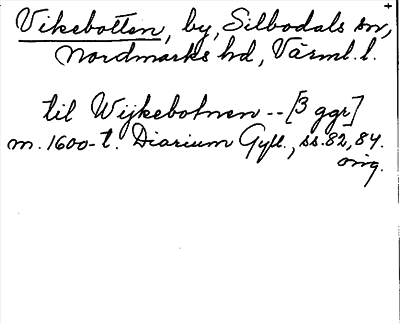 Vikebotten, by, Silbodals sn,
Nordmarks hd, Värml. l.
til Wijkebotnen -- [3 ggr]
m. 1600-t. Diarium Gyll., ss. 82, 84.
orig.